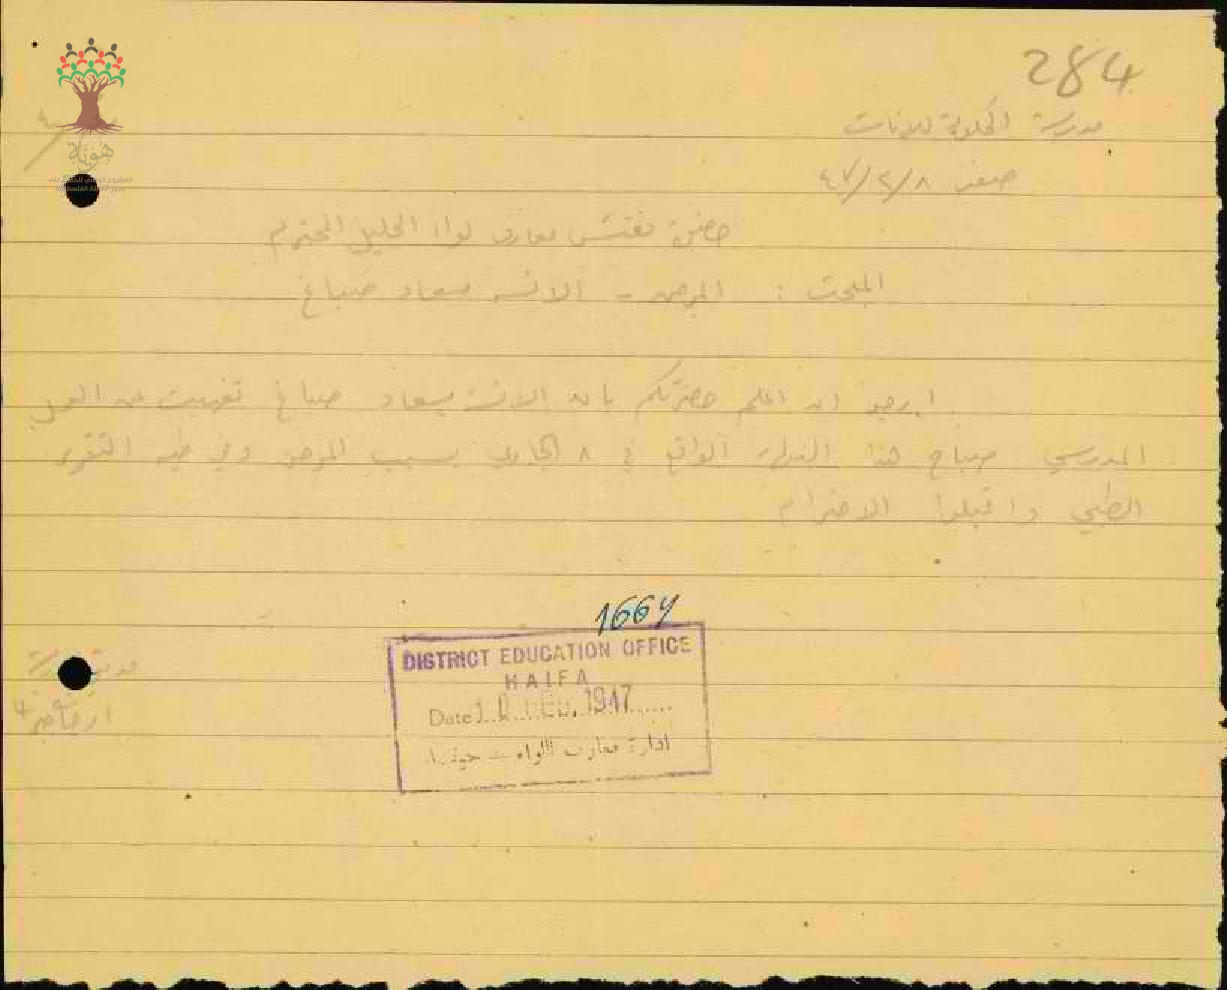 284
مدرسة الحكومة للاناث
صفد ٨/٢/٤٧
حضرة مفتش معارف لواء الجليل المحترم
المبحث : المرض - الانسه سعاد صباغ
ارجو ان اعلم حضرتكم بان الانسة سعاد صباغ تغيبت عن العمل
المدرسي صباح هذا النهار الواقع في ٨ الجاري بسبب المرض وفي طيه التقرير
الطبي واقبلوا الاحترام
1664
DISTRICT EDUCATION OFFICE
HAIFA
Date 10 FEB. 1947
ادارة معارف اللواء - حيفا
هوية